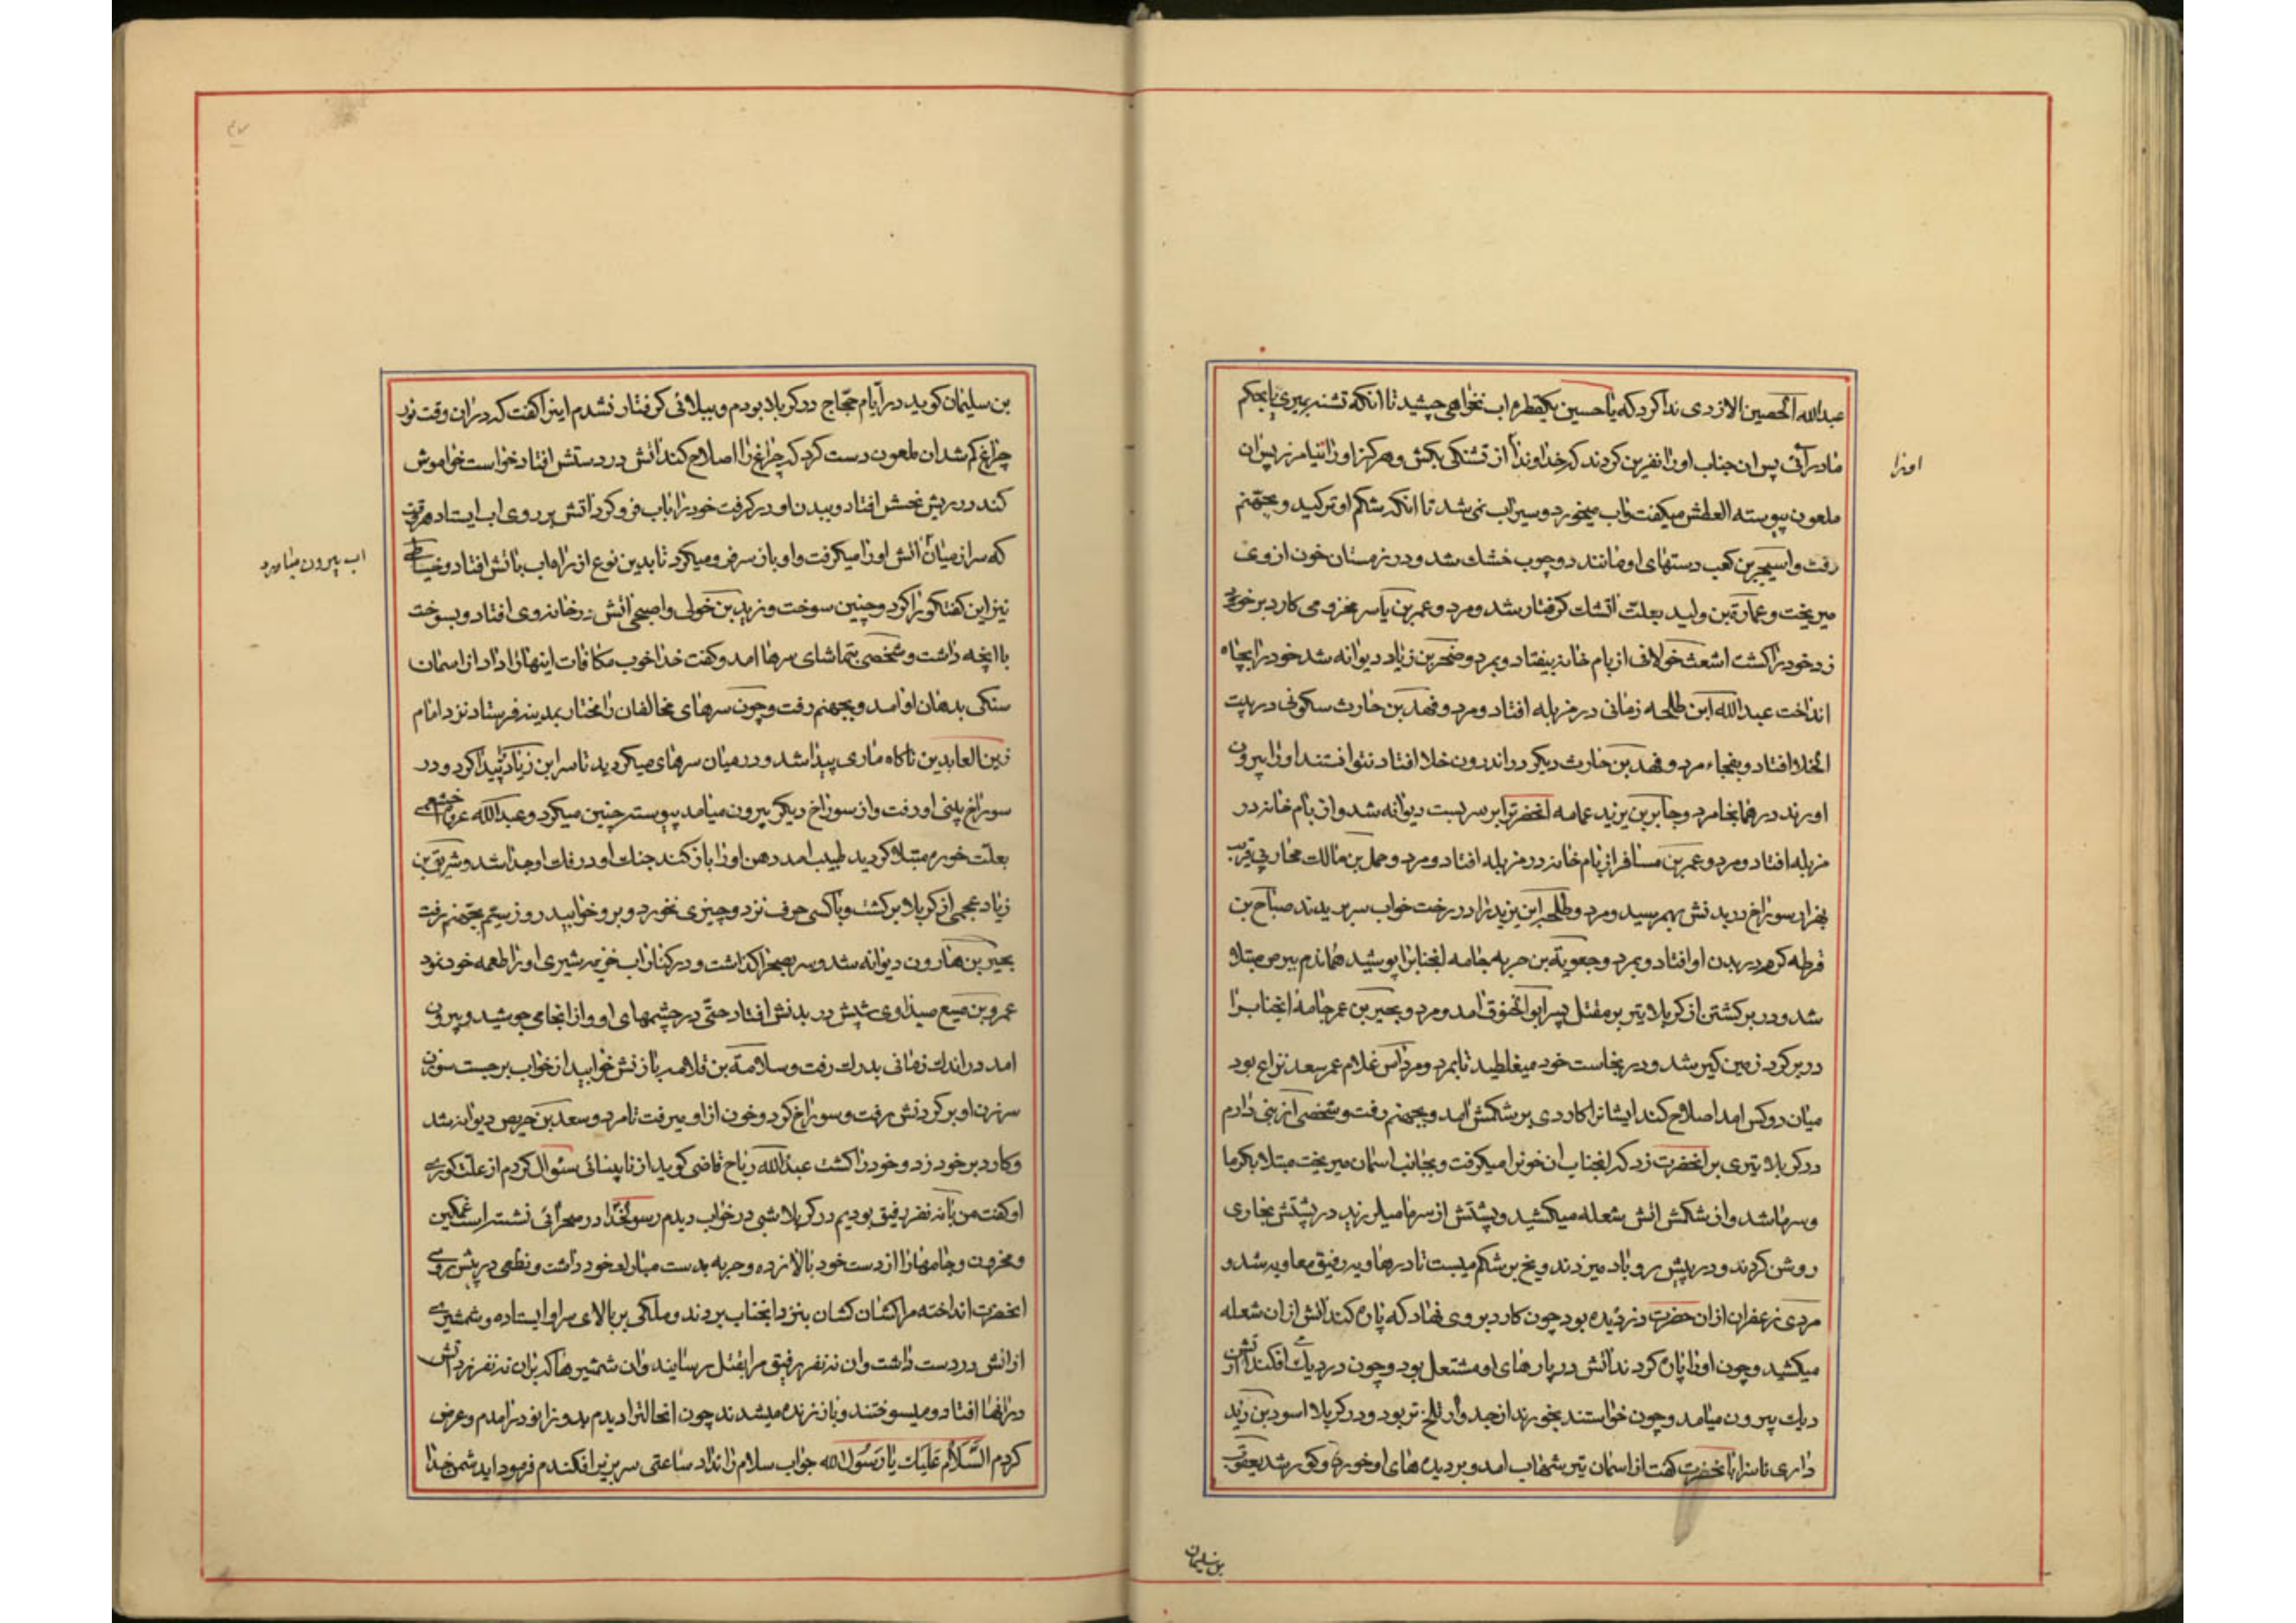 عبدالله الحصین الازدی ندا کرد که یا حسین یکقطره اب نخواهی چشید تا انکه تشنه بمیری یا بحکم
ما درآئی پس ان جناب او را نفرین کردند که خداوندا از تشنکی بکش و هرکز او را نیامرز پس ان
اورا
ملعون پیوسته العطش میکفت و اب میخورد و سیراب نمی شد تا انکه شکم او ترکید و بجهنم
رفت و اسیجر بن کعب دستهای او مانند دو چوب خشک شد و در زمستان خون از وی
میریخت و عمارة بن ولید بعلت اتشک کرفتار شد و مرد و عمر بن یاسر مخزومی کارد بر خود
زد خود را کشت اشعث خولانی از بام خانه بیفتاد و بمرد و ضحر بن زیاد دیوانه شد خود را بچاه
انداخت عبدالله ابن طلحه زمانی در مزبله افتاد و مرد و فهد بن حارث سکونی در بیت
الخلا افتاد و بفجاء مرد و فهد بن حارث دیکر در اندرون خلا افتاد نتوانستند او را بیرون
اورند در همانجا مرد و جابر بن یزید عمامه انحضرترا بر سر بست دیوانه شد و از بام خانه در
مزبله افتاد و مرد و عمر بن مسافر از بام خانه در مزبله افتاد و مرد و حمل بن مالک محاربی قریب
بهزار سوراخ در بدنش بهم رسید و مرد و طلحه ابن یزید را در رخت خواب سر بریدند صباح بن
قرطه کرم در بدن او افتاد و بمرد و جعویة بن حربه جامه انجنابرا پوشید هماندم ببرص مبتلا
شد و در برکشتن از کربلا تیر بر مقتل پسر ابو الحنوق امد و مرد و بحیر بن عمر جامهٔ انجنابرا
در بر کرد زمین کیر شد و در نجاست خود میغلطید تا بمرد و مرداس غلام عمر سعد نزاع بود
میان دو کس امد اصلاح کند ایشانرا کاردی بر شکمش امد و بجهنم رفت و شخصی از بنی دارم
در کربلا تیری بر انحضرت زد که انجناب ان خونرا میکرفت و بجانب اسمان میریخت مبتلا بکرما
و سرما شد و از شکمش اتش شعله میکشید و پشتش از سرما میلرزید در پشتش بخاری
روشن کردند و در پیش رو باد میزدند و یخ بر شکم میبست تا در هاویه رفیق معاویه شد و
مردی زعفران از ان حضرت دزدیده بود چون کارد بروی نهاد که پاره کند اتش از ان شعله
میکشید و چون او را پاره کردند اتش در پارهای او مشتعل بود و چون در دیک افکند اتش از
دیک بیرون میامد و چون خواستند بخورند از جدوار تلخ تر بود و در کربلا اسود بن زید
داری ناسزا بانحضرت کفت از اسمان تیر شهاب امد و بر دیدهای او خورد و کور شد یعقوب
بن سلیمان
بن سلیمان کوید در ایام حجاج در کربلا بودم و ببلائی کرفتار نشدم اینرا کفت که دران وقت نور
چراغ کم شد ان ملعون دست کرد که چراغ را اصلاح کند اتش در دستش افتاد خواست خواموش
کند در ریش نحسش افتاد و ببدن او در کرفت خود را باب فرو کرد اتش بر روی اب ایستاد هر وقت
که سر از میان اتش او را میکرفت و او باز سر فرو میکرد تا بدین نوع از راه اب باتش افتاد و خیاطی
اب بیرون میاورد
نیز این کفتکو را کرد و چنین سوخت و یزید بن خولی واصبحی اتش در خانه وی افتاد و بسوخت
با انچه داشت و شخصی بتماشای سرها امد و کفت خدا خوب مکافات اینها را داد از اسمان
سنکی بدهان او امد و بجهنم رفت و چون سرهای مخالفان را مختار بمدینه فرستاد نزد امام
زین العابدین ناکاه ماری پیدا شد و در میان سرهای میکردید تا سر ابن زیاد پیدا کرد و در
سوراخ بینی او رفت و از سوراخ دیکر بیرون میامد پیوسته چنین میکرد و عبدالله خثعمی
بعلت خوره مبتلا کردید طبیب امد دهن او را باز کند جنک او در رفت او جدا شد و شریق بن
زیاد عجمی از کربلا برکشت و با کسی حرف نزد و چیزی نخورد و برو خوابید روز بیستم بجهنم رفت
بحیر بن هارون دیوانه شد و سر بصحرا کذاشت و در کنار اب خزیه شیری او را طعمه خود نمود
عمرو بن صبیع صیداوی شپش در بدنش افتاد حتی در چشمهای او و از انجا می جوشید و بیرون
امد در اندک زمانی بدرک رفت و سلامة بن قلامه با زنش خوابید از خواب برجست سوزن
سر زن او بر کردنش رفت و سوراخ کرد و خون از او میرفت تا مرد و سعد بن حریص دیوانه شد
و کارد بر خود زد و خود را کشت عبدالله ریاح قاضی کوید از نابینائی سئوال کردم از علت کوری
او کفت من با نه نفر رفیق بودیم در کربلا شبی در خواب دیدم رسولخدا در صحرائی نشسته است غمکین
و محزون و جامهارا از دست خود بالا زده و حربه بدست مبارک خود داشت و نطعی در پیش روی
انحضرت انداخته مرا کشان کشان بنزد انجناب بردند و ملکی بر بالای سر او ایستاده و شمشیری
از اتش در دست داشت و ان نه نفر رفیق مرا بقتل رسانید و ان شمشیر هاکه بان نه نفر زد اتش
درانها افتاد و میسوختند و باز زنده میشدند چون انحالترا دیدم بدو زانو درامدم و عرض
کردم السلام علیک یا رسول الله جواب سلام را نداد ساعتی سر بزیر افکندم فرمود ای دشمن خدا